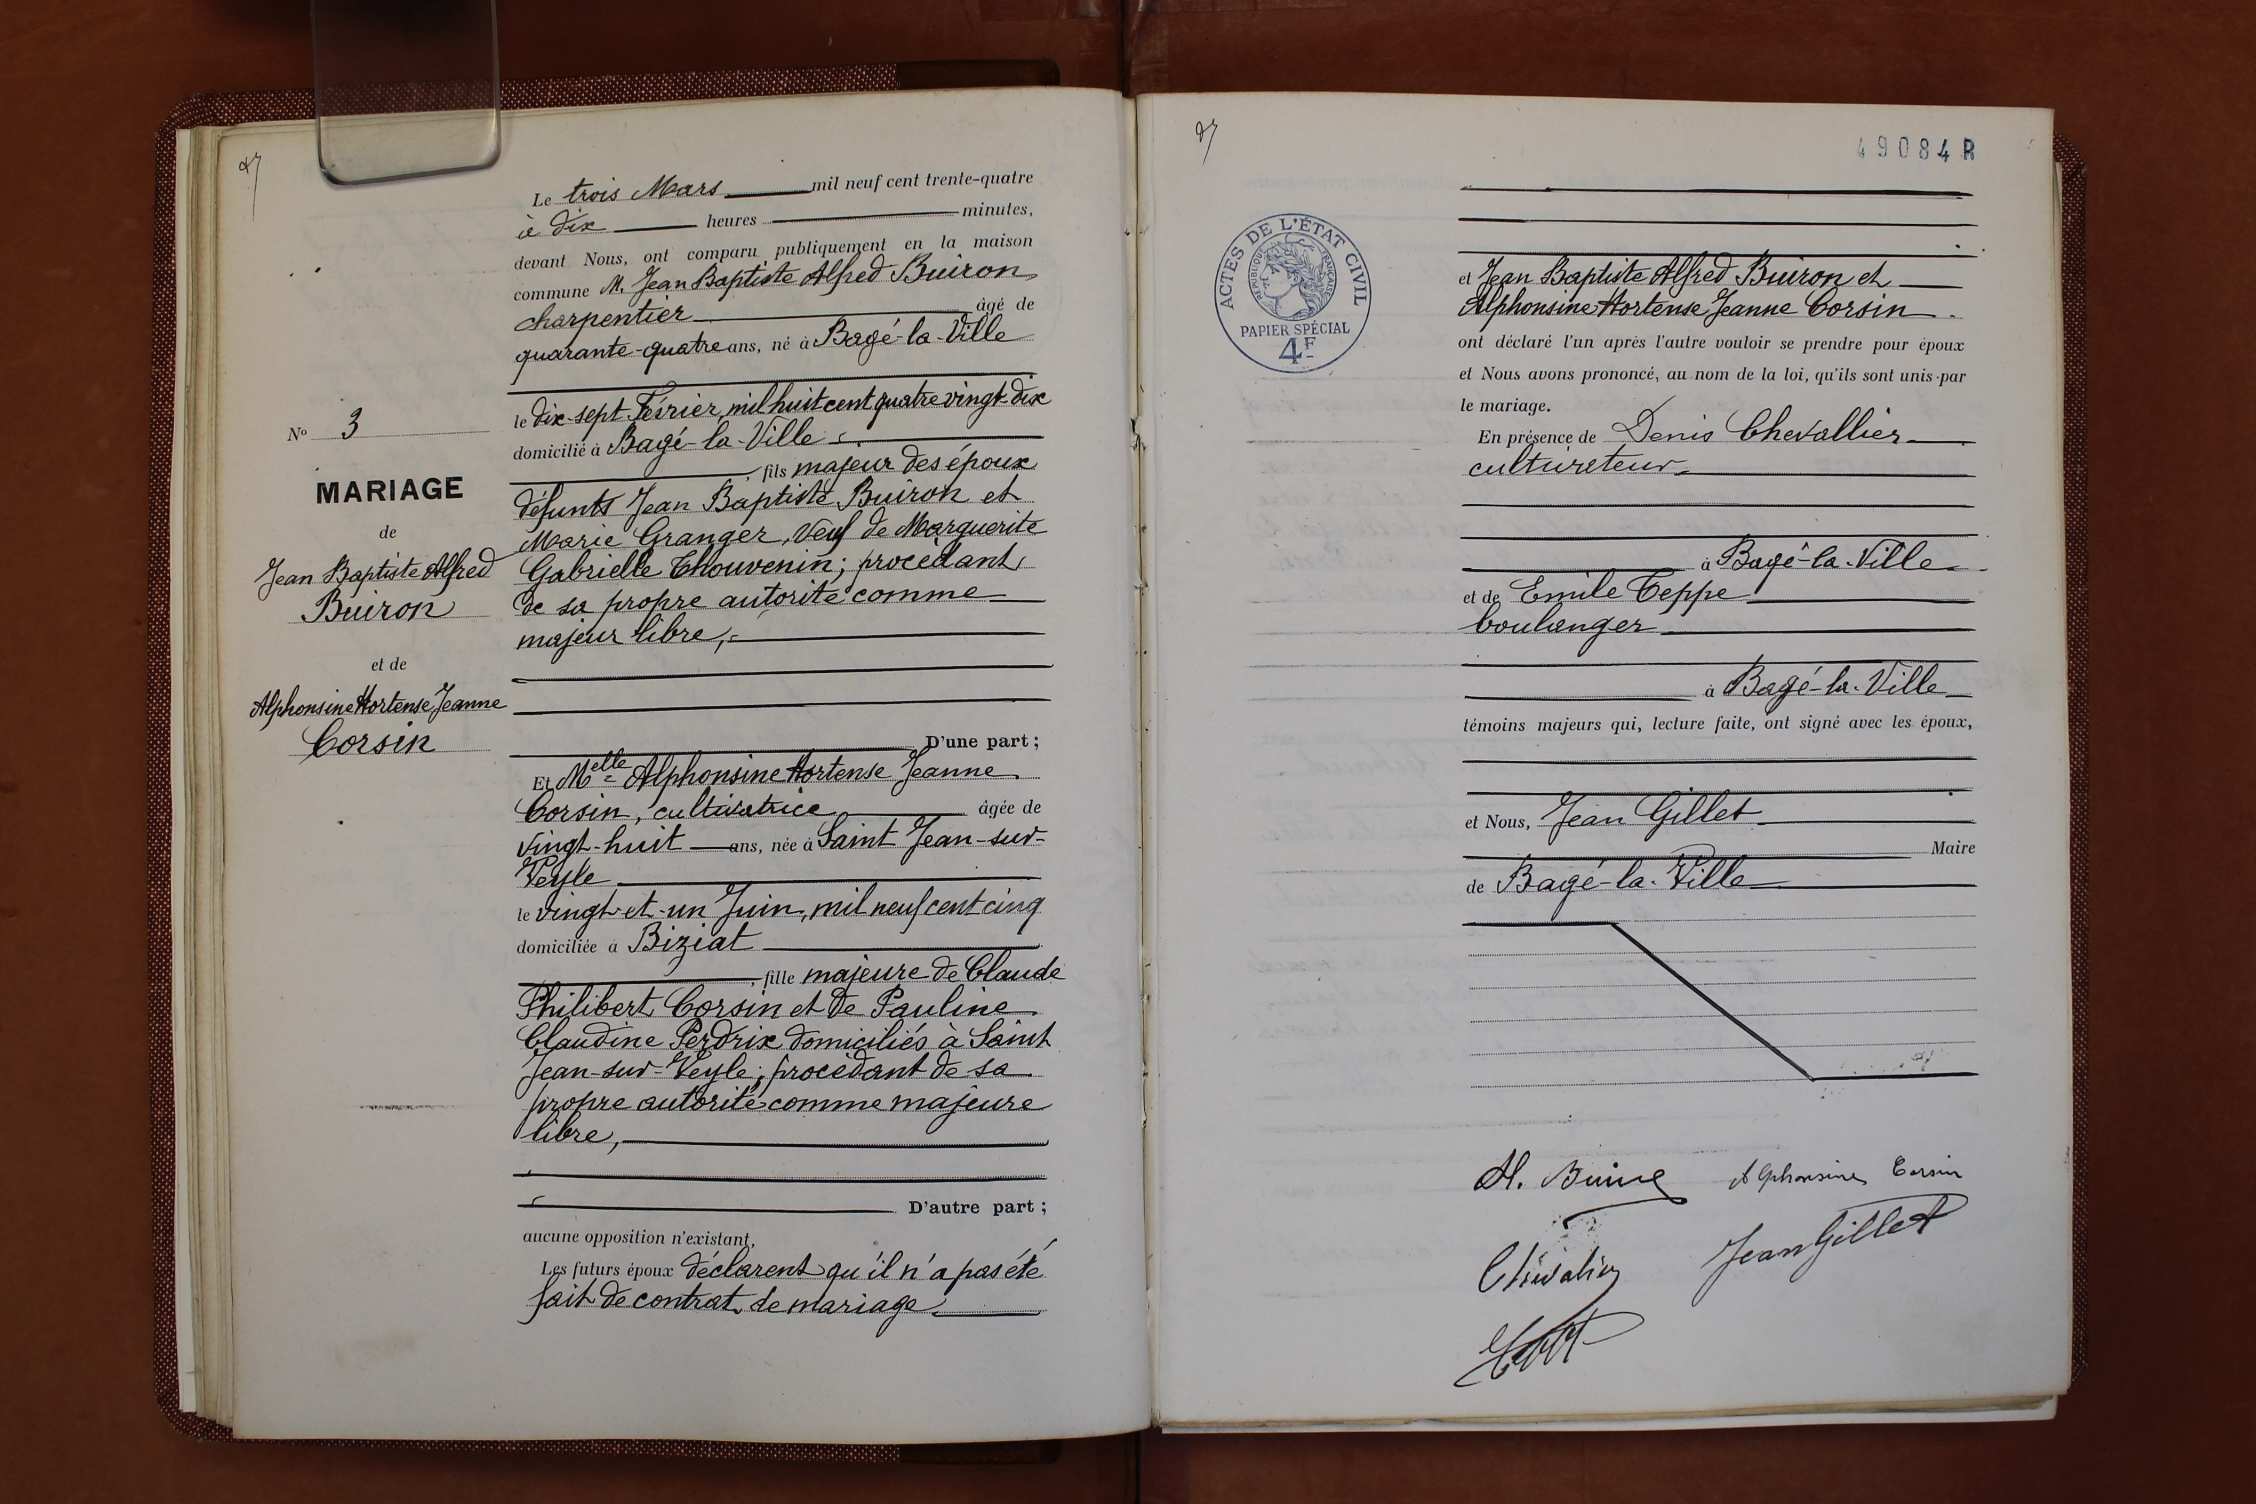 Le trois Mars mil neuf cent trente-quatre
à dix heures minutes,
devant Nous, ont comparu publiquement en la maison
commune M. Jean Baptiste Alfred Buiron
charpentier âgé de
quarante-quatre ans, né à Bagé-la-Ville
le dix-sept Février, mil huit cent quatre vingt-dix
domicilié à Bagé-la-Ville
, fils majeur des époux
défunts Jean Baptiste Buiron et
Marie Granger, veuf de Marguerite
Gabrielle Thouvenin; procédant
de sa propre autorité comme
majeur libre,
D'une part;
Et Melle Alphonsine Hortense Jeanne
Corsin, cultivatrice âgée de
vingt-huit ans, née à Saint Jean-sur-
Veyle
le vingt-et-un Juin, mil neuf cent cinq
domiciliée à Biziat
, fille majeure de Claude
Philibert Corsin et de Pauline
Claudine Perdrix domiciliés à Saint
Jean-sur-Veyle; procédant de sa
propre autorité comme majeure
libre,
D'autre part;
aucune opposition n'existant,
Les futurs époux déclarent qu'il n'a pas été
fait de contrat de mariage.
No 3
MARIAGE
de
Jean Baptiste Alfred
Buiron
et de
Alphonsine Hortense Jeanne
Corsin
49084R
ACTES DE L'ÉTAT CIVIL
RÉPUBLIQUE FRANÇAISE
PAPIER SPÉCIAL
4F
et Jean Baptiste Alfred Buiron et
Alphonsine Hortense Jeanne Corsin
ont déclaré l'un après l'autre vouloir se prendre pour époux
et Nous avons prononcé, au nom de la loi, qu'ils sont unis par
le mariage.
En présence de Denis Chevallier
cultireteur
à Bagé-la-Ville
et de Emile Teppe
boulanger
à Bagé-la-Ville
témoins majeurs qui, lecture faite, ont signé avec les époux,
et Nous, Jean Gillet
Maire
de Bagé-la-Ville
A. Buiron Alphonsine Corsin
Jean Gillet